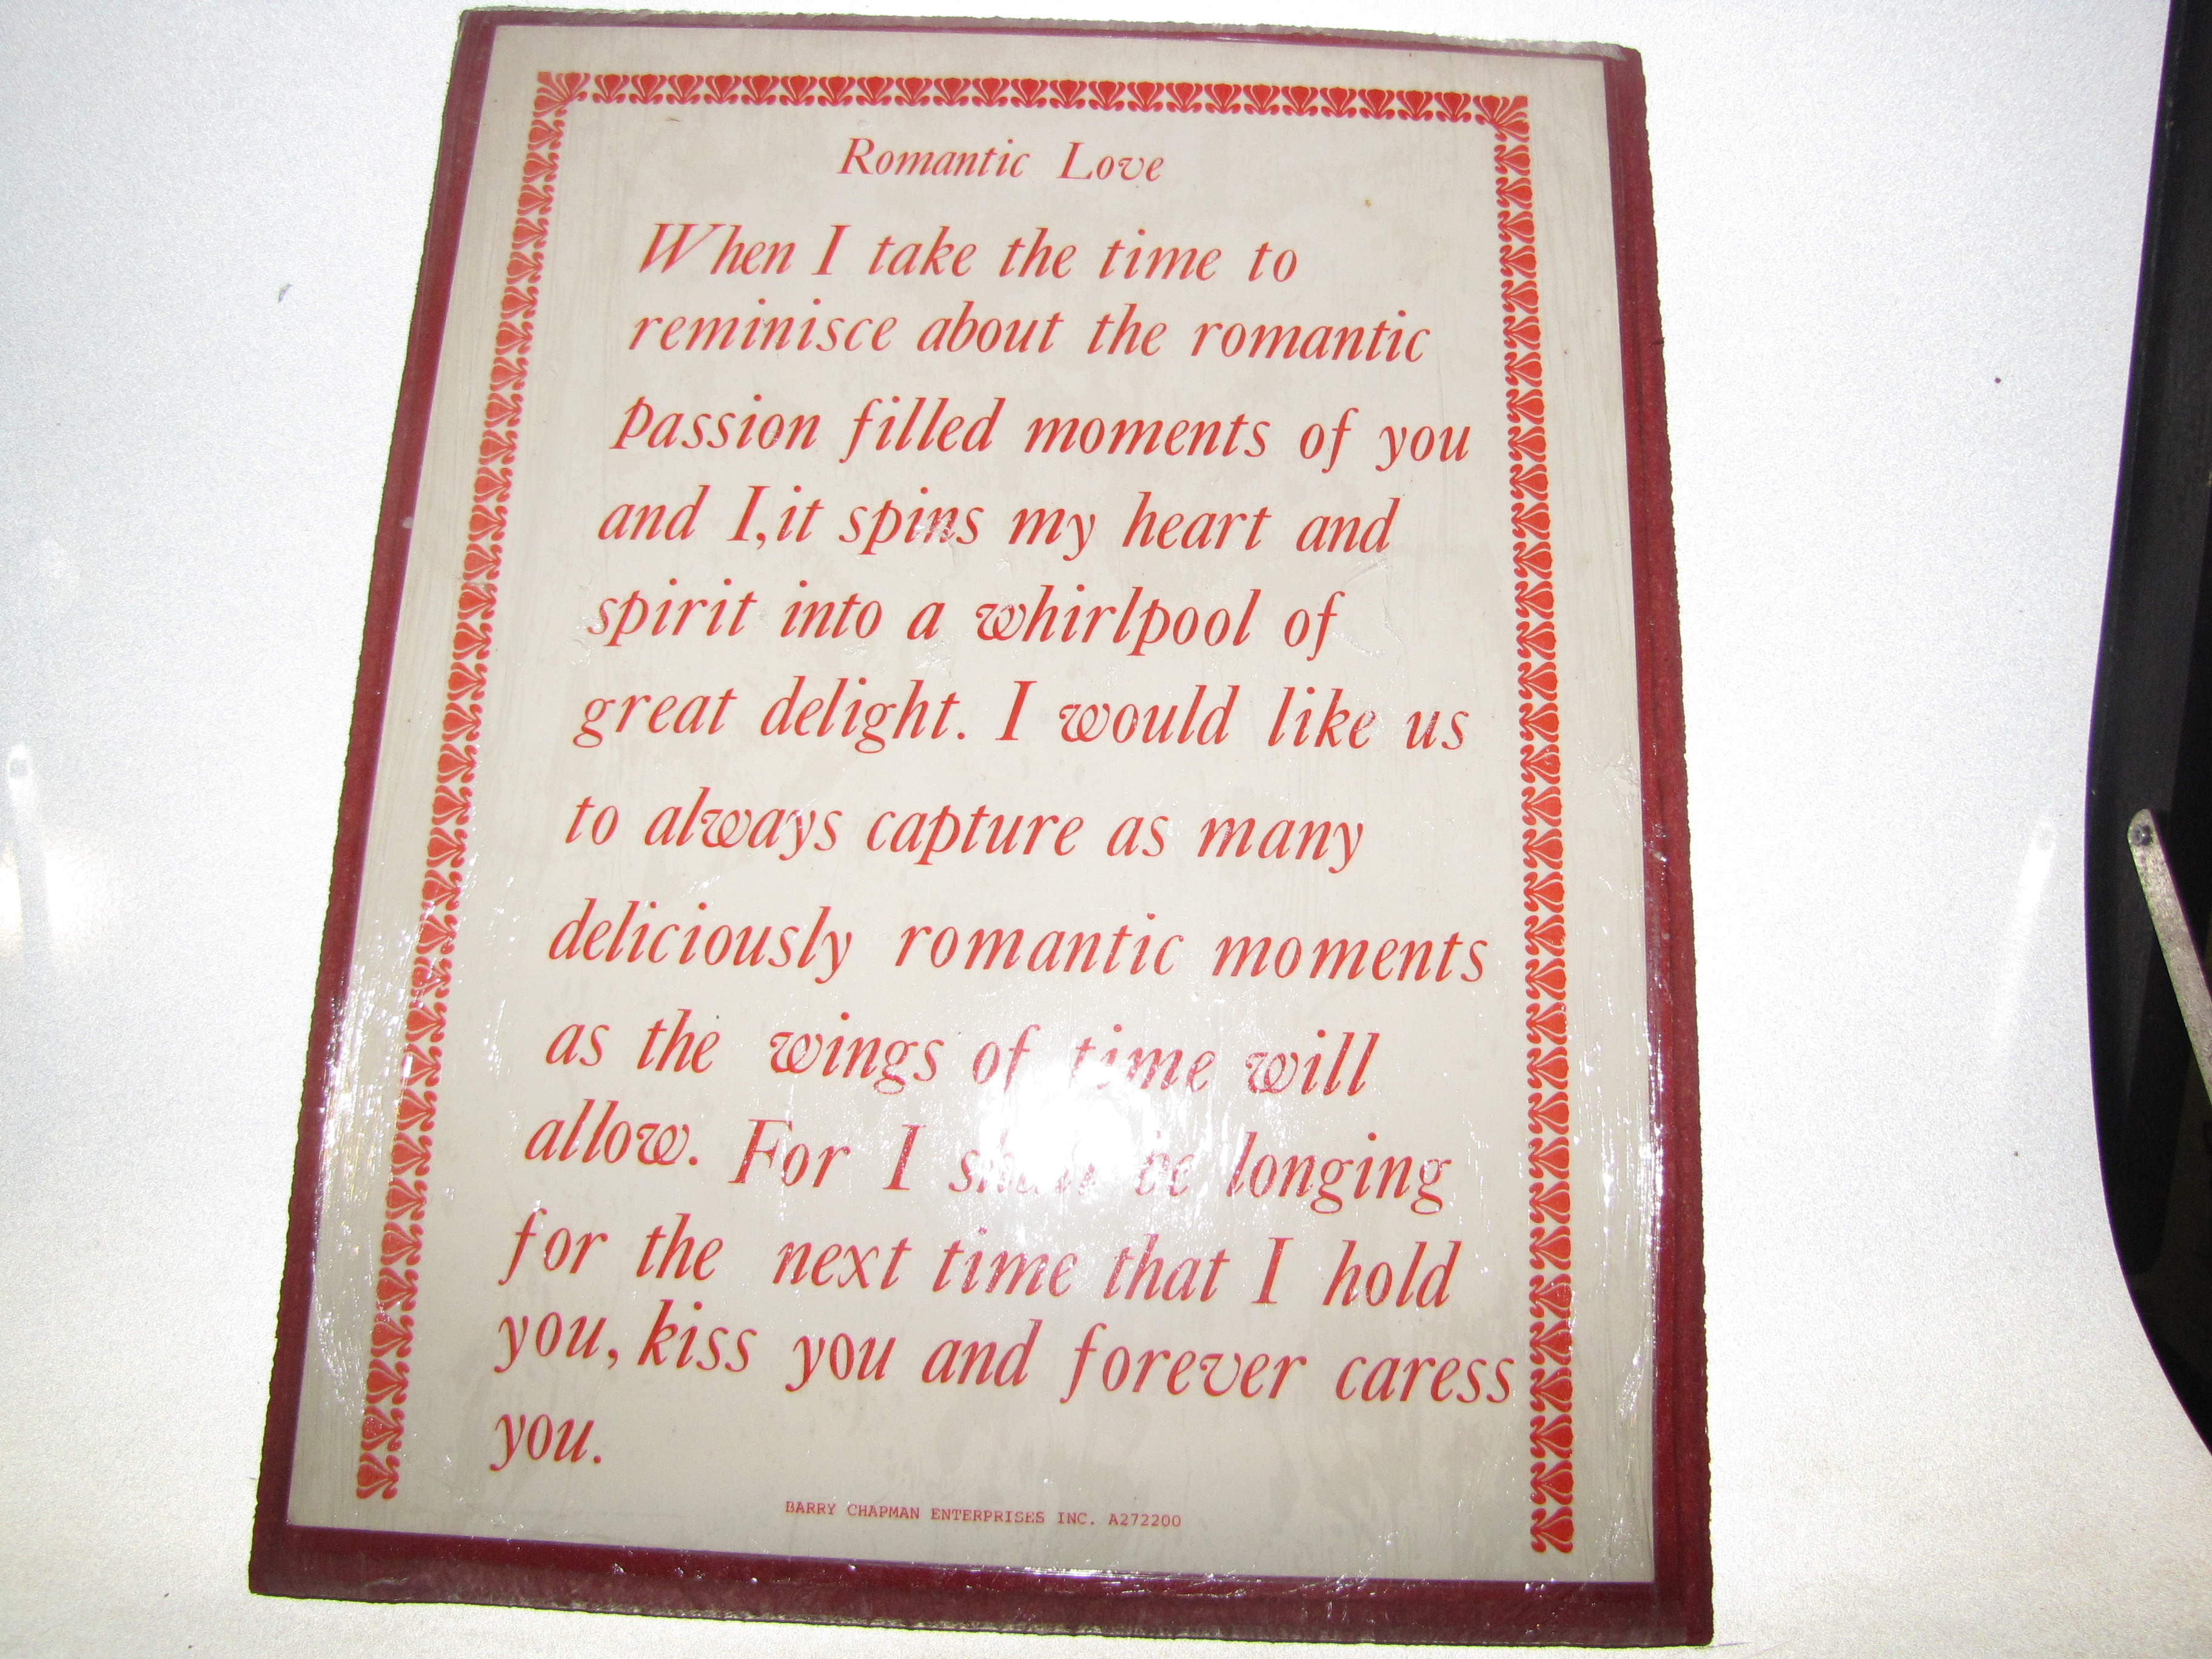 Romantic Love
When I take the time to
reminisce about the romantic
passion filled moments of you
and I, it spins my heart and
spirit into a whirlpool of
great delight. I would like us
to always capture as many
deliciously romantic moments
as the wings of time will
allow. For I shall be longing
for the next time that I hold
you, kiss you and forever caress
you.
BARRY CHAPMAN ENTERPRISES INC. A272200